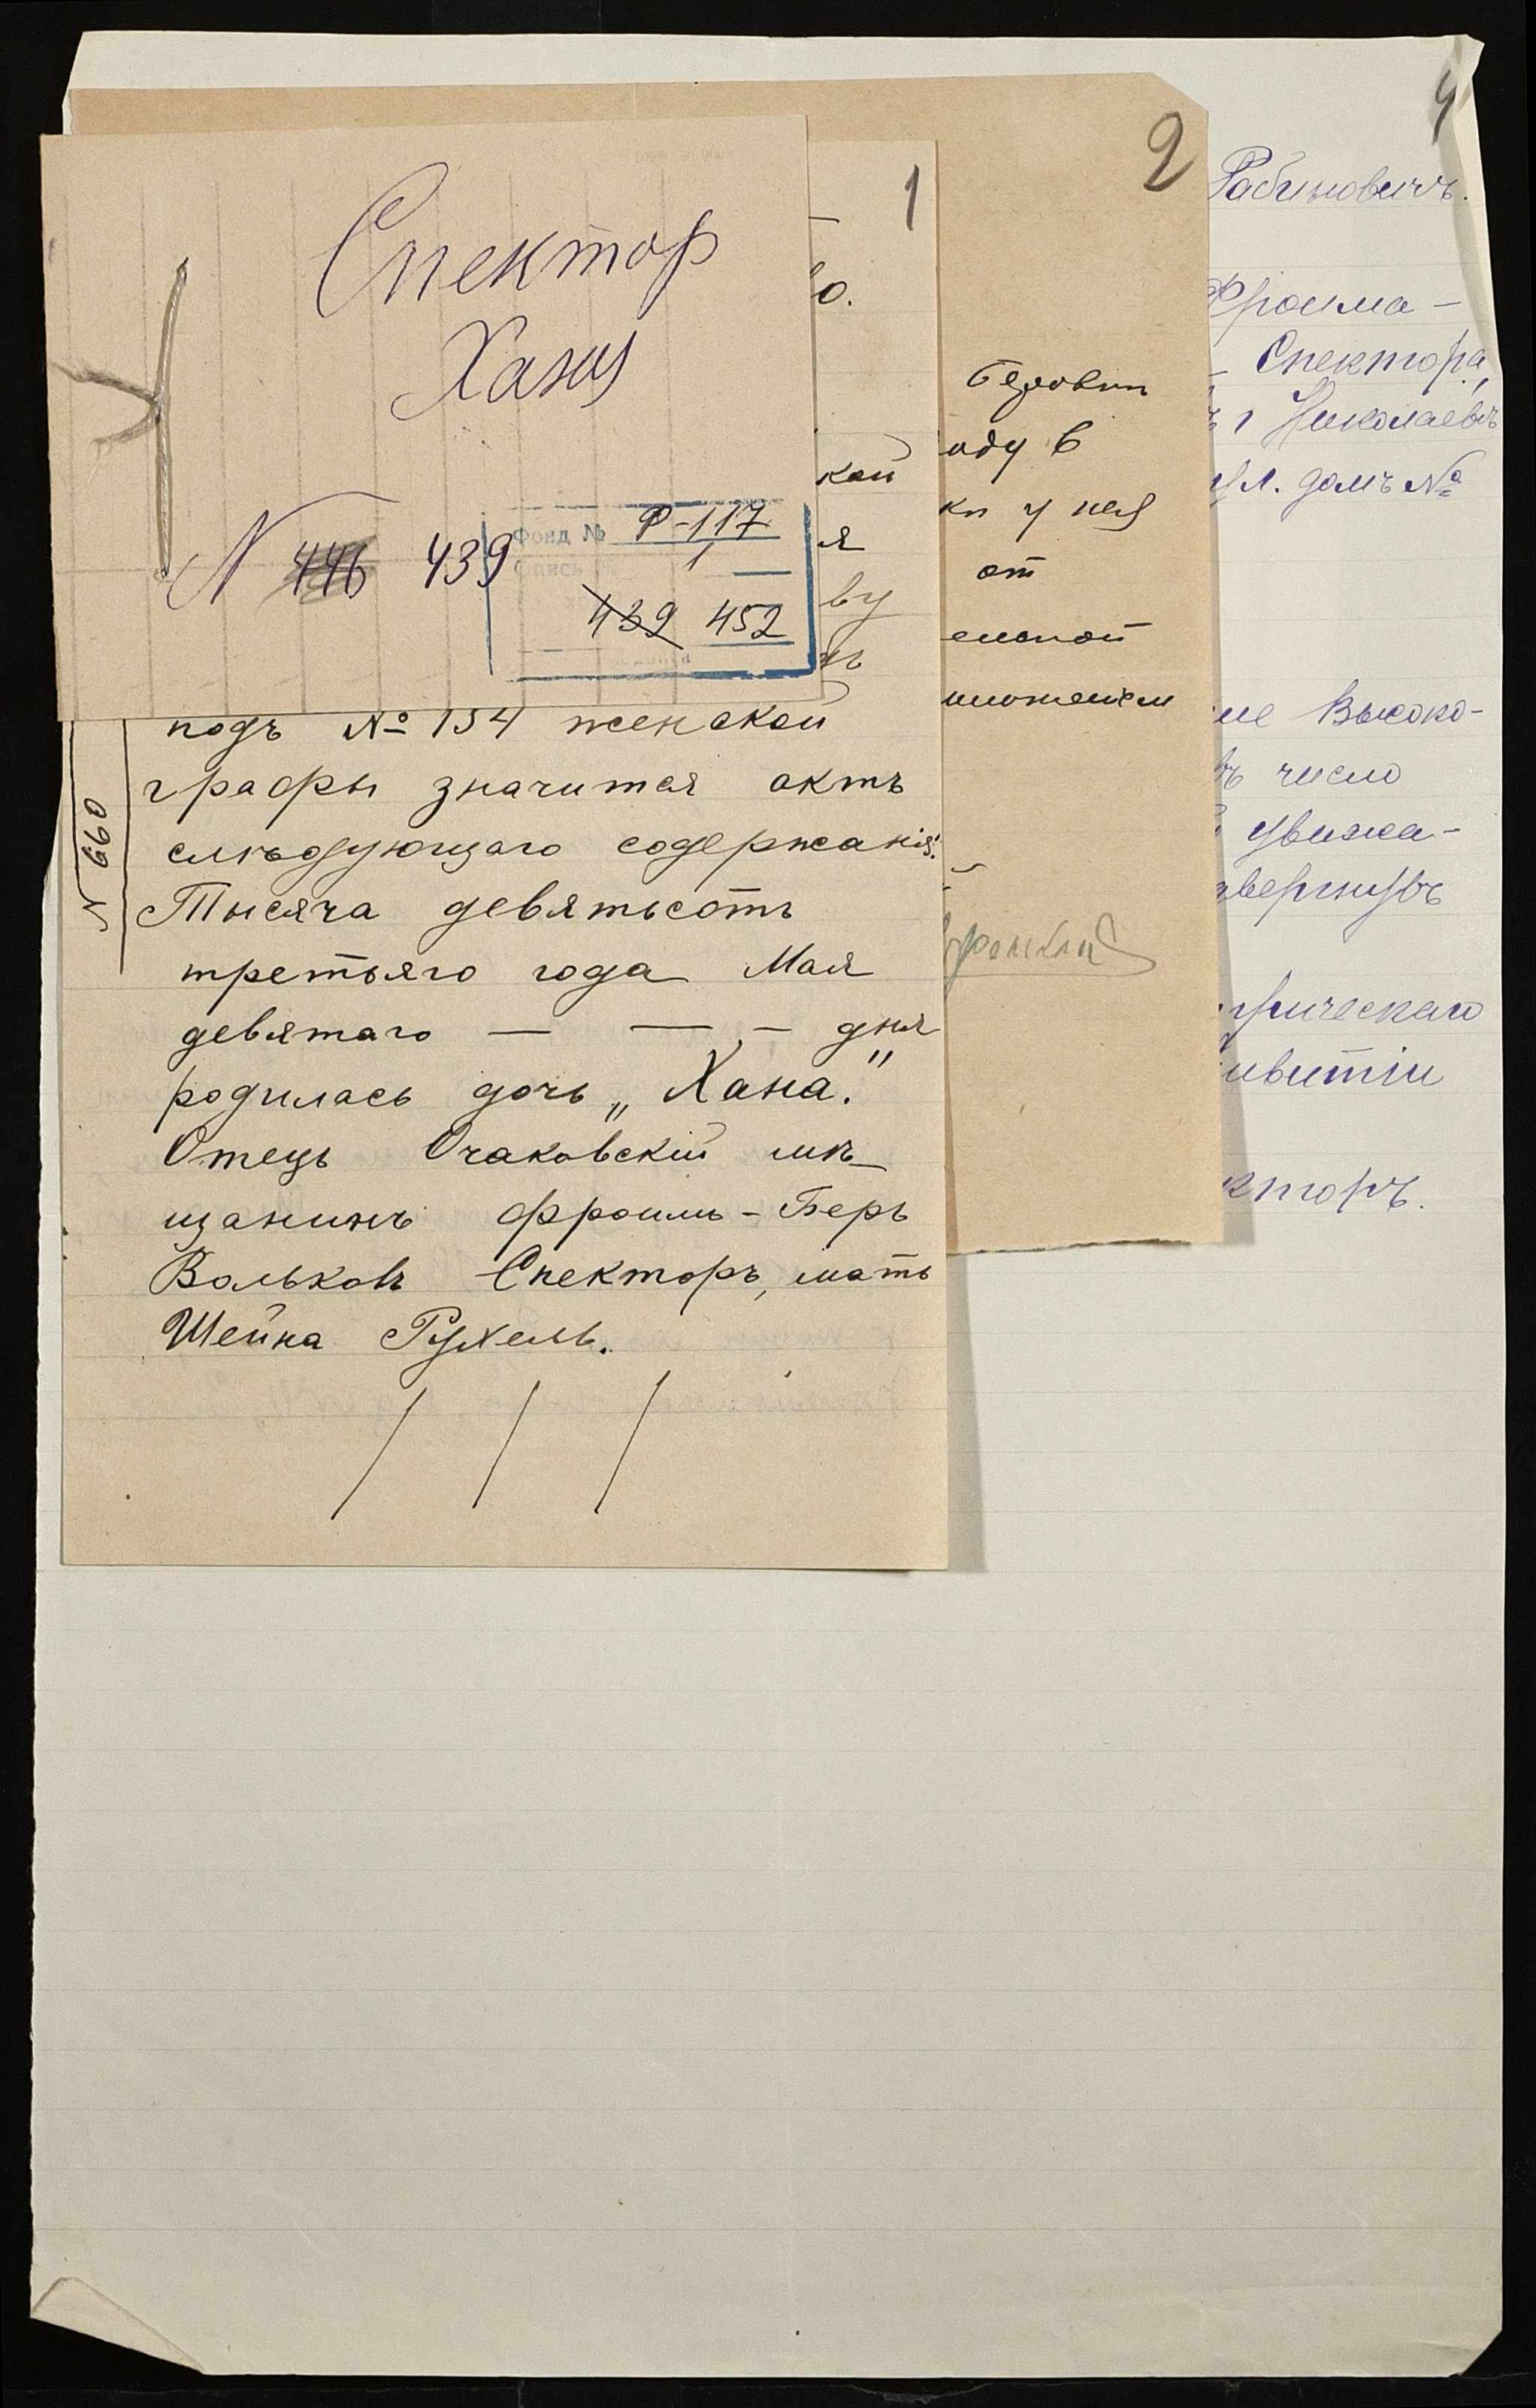 Спектор
Хана
N 446 439
Фонд № Р-117
Опись 1
439 452
1
о.
кой
я
ву
подъ № 154 женской
графы значится актъ
слѣдующаго содержанія:
Тысяча девятьсотъ
третьяго года Мая
девятаго — — — дня
родилась дочь „Хана."
Отецъ Очаковскій мѣ-
щанинъ Фроимъ-Беръ
Вольковъ Спекторъ, мать
Шейна Рухель.
N 660
2
Беровны
оду в
ки у нея
от
ельной
4
Рабиновичъ.
Фроима-
Спектора,
г Николаевъ
ул. домъ №
ие Высоко-
въ число
увижа-
звергнувъ
рическаго
ивитіи
кторъ.